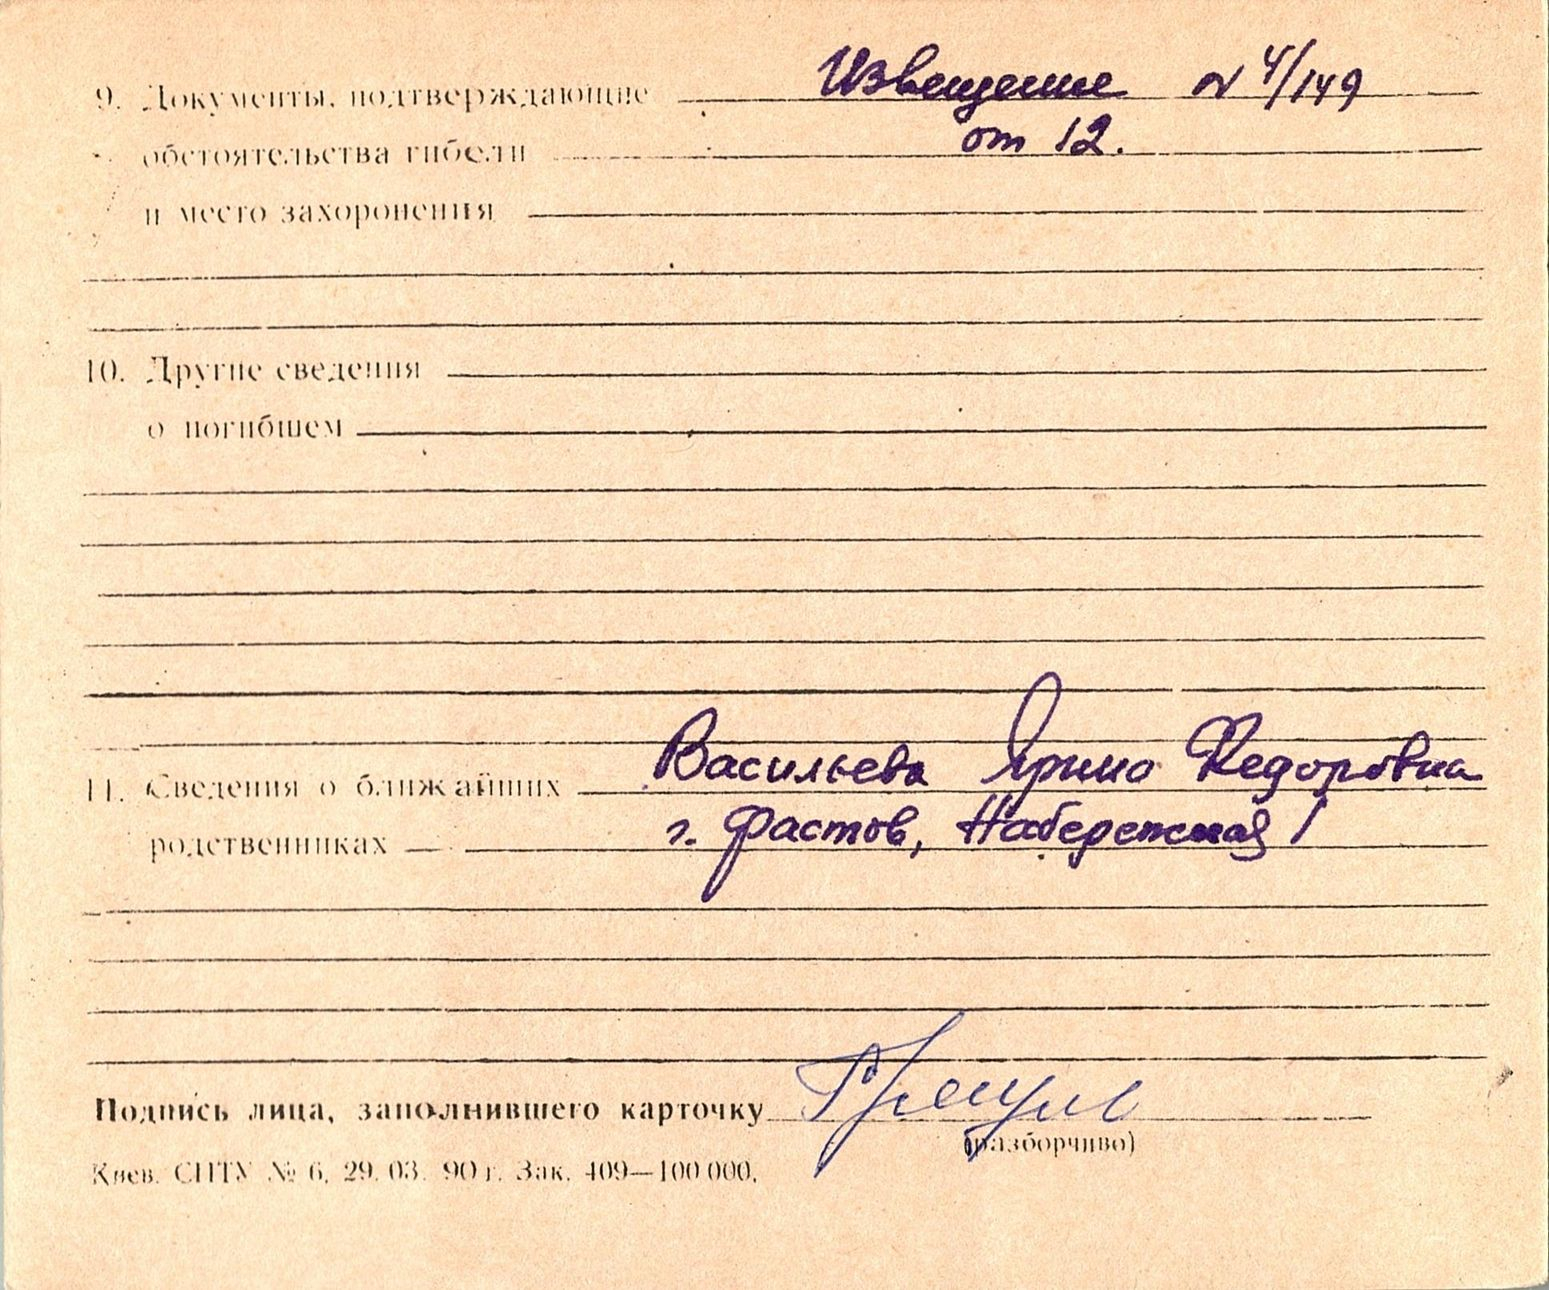 9. Документы, подтверждающие Извещение № 4/149
обстоятельства гибели от 12.
и место захоронения
10. Другие сведения
о погибшем
11. Сведения о ближайших Васильева Ярина Федоровна
родственниках г. Фастов, Набережная 1
Подпись лица, заполнившего карточку
(разборчиво)
Киев. СПТУ № 6, 29. 03. 90 г. Зак. 409—100 000.